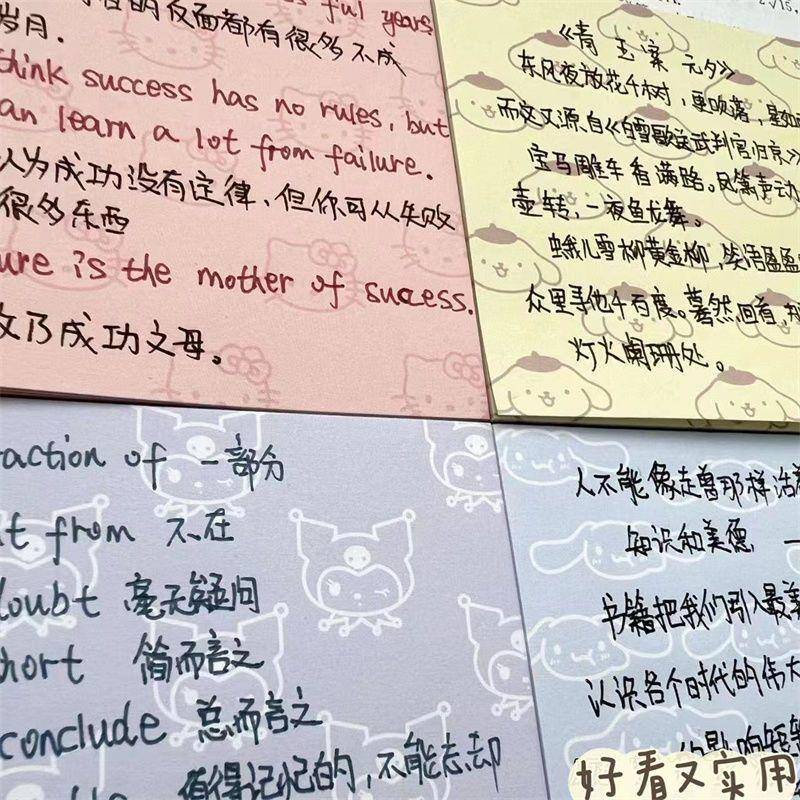 ful years
的反面都有很多不成
岁月.
think success has no rules, but
an learn a lot from failure.
认为成功没有定律、但你可从失败
很多东西
ure is the mother of success.
乃成功之母。
《青玉案 元夕》
东风夜放花千树,更吹落,星如
而文又源自《白雪歌送武判官归京》
宝马雕车香满路。凤箫声动
壶转,一夜鱼龙舞。
蛾儿雪柳黄金柳,笑语盈盈
众里寻他千百度。蓦然回首,那
灯火阑珊处。
action of 一部分
t from 不在
doubt 毫无疑问
hort 简而言之
conclude 总而言之
值得记忆的,不能忘却
人不能像走兽那样活着
知识和美德 一
书籍把我们引入最美
认识各个时代的伟大
好看又实用